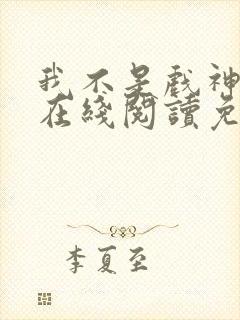 我不是戏神
在綫閱讀免
李夏至